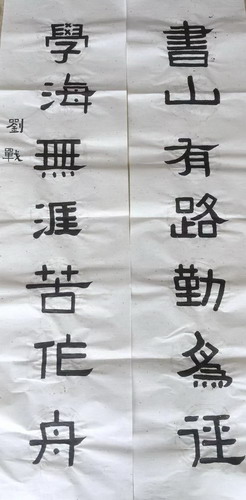 書山有路勤為徑
學海無涯苦作舟
劉戰